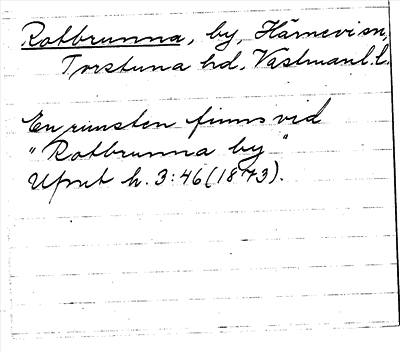 Rotbrunna, by, Härnevi sn,
Torstuna hd, Västmanl. l.
En runsten finns vid
"Rotbrunna by"
Upmt h. 3:46 (1873).